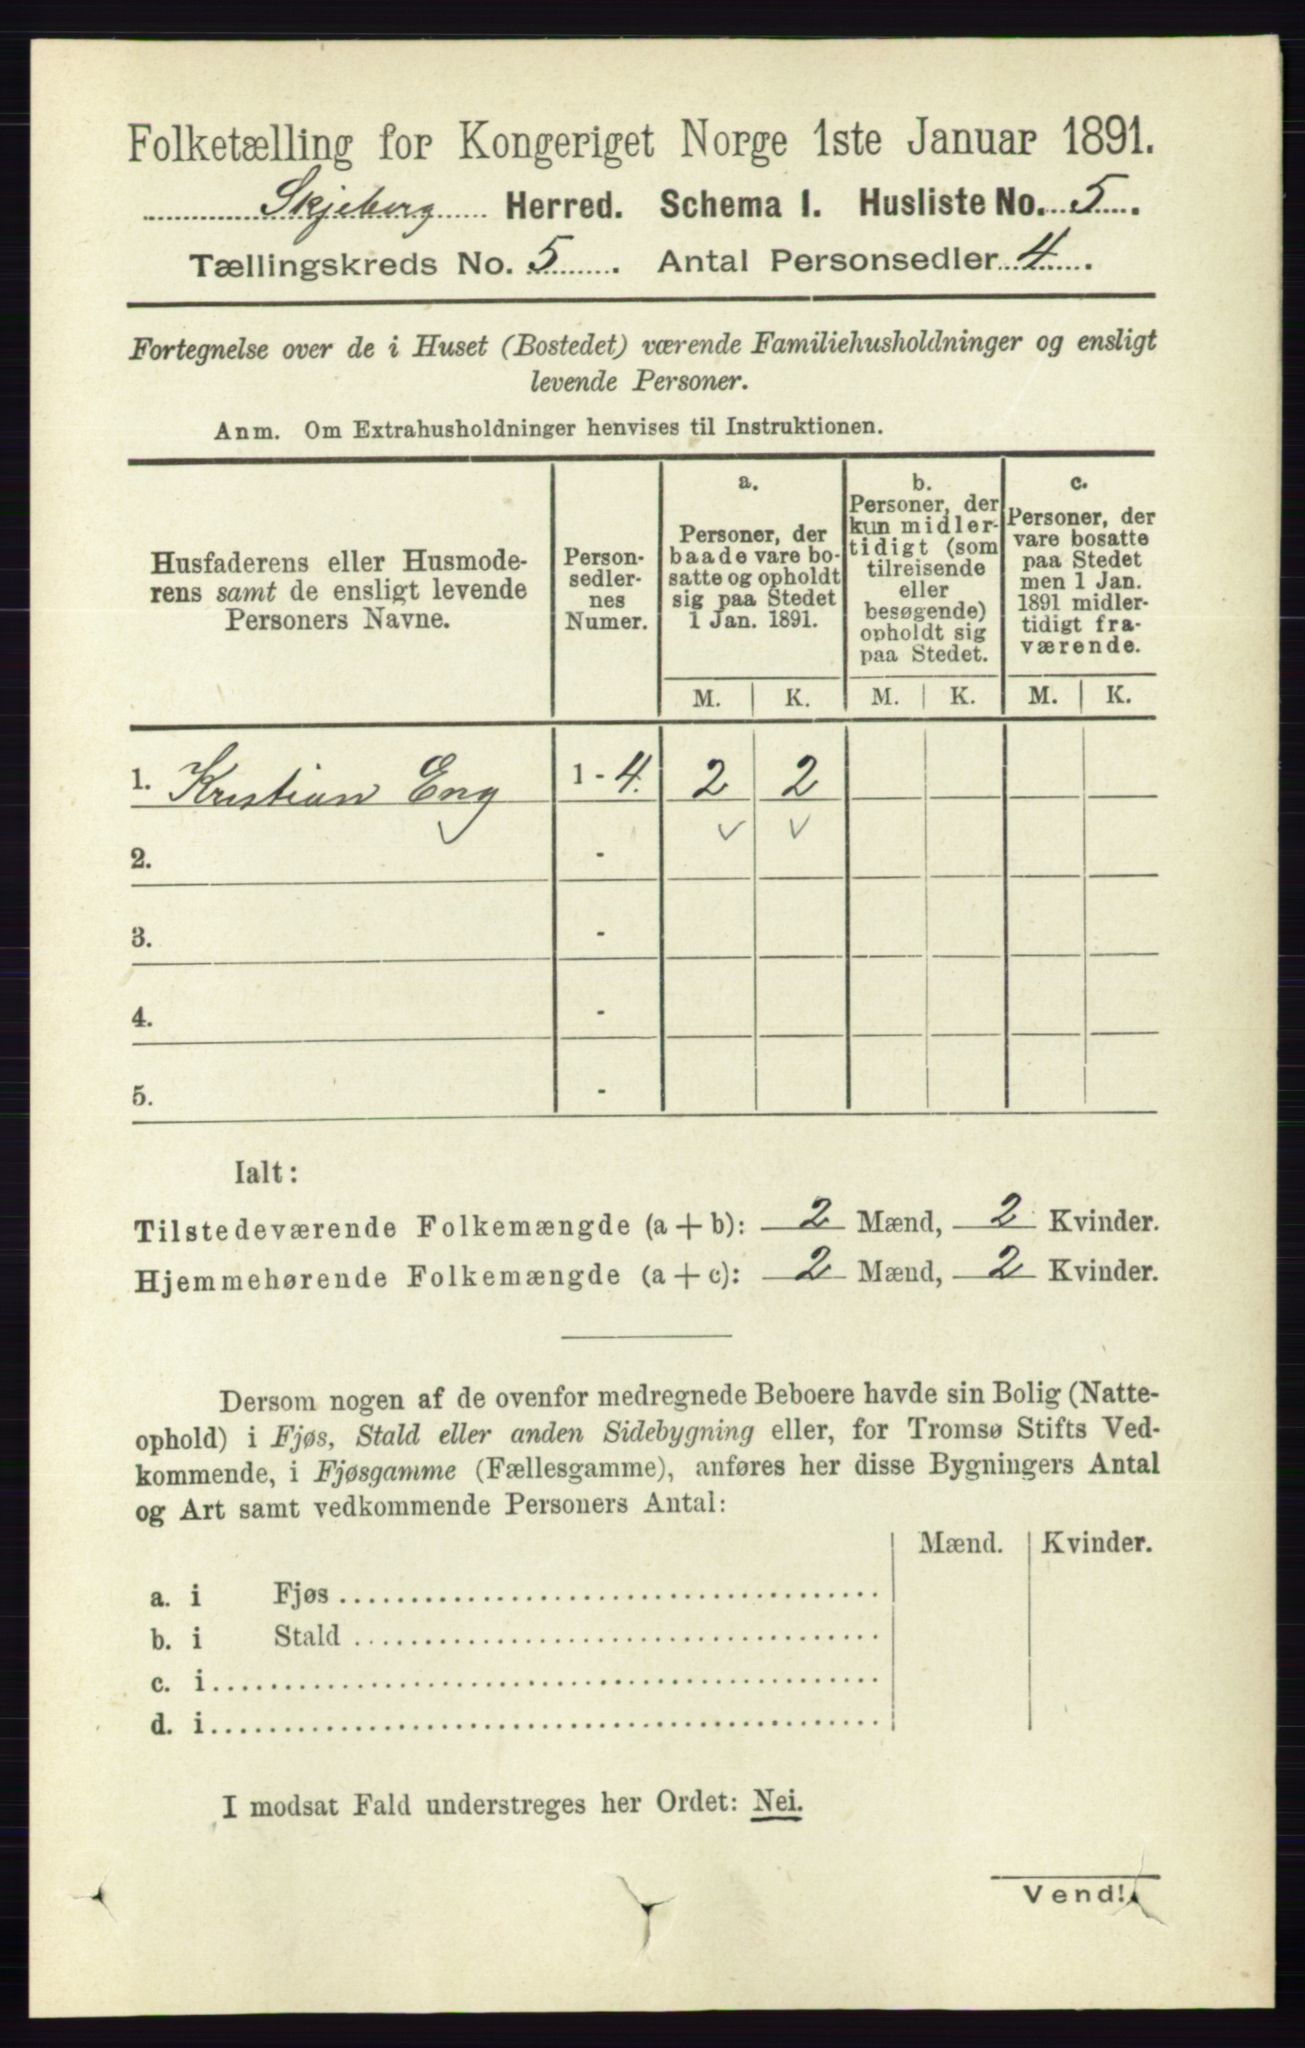 Folketælling for Kongeriget Norge 1ste Januar 1891.
Skjeberg Herred. Schema I. Husliste No. 5.
Tællingskreds No. 5. Antal Personsedler 4.
Fortegnelse over de i Huset (Bostedet) værende Familiehusholdninger og ensligt
levende Personer.
Anm. Om Extrahusholdninger henvises til Instruktionen.
Husfaderens eller Husmode-
rens samt de ensligt levende
Personers Navne.
Person-
sedler-
nes
Numer.
a.
Personer, der
baade vare bo-
satte og opholdt
sig paa Stedet
1 Jan. 1891.
b.
Personer, der
kun midler-
tidigt (som
tilreisende
eller
besøgende)
opholdt sig
paa Stedet.
c.
Personer, der
vare bosatte
paa Stedet
men 1 Jan.
1891 midler-
tidigt fra-
værende.
M. K. M. K. M. K.
1. Kristian Eng 1 - 4. 2 2
2. -
3. -
4. -
5. -
Ialt:
Tilstedeværende Folkemængde (a + b): 2 Mænd, 2 Kvinder.
Hjemmehørende Folkemængde (a + c): 2 Mænd, 2 Kvinder.
Dersom nogen af de ovenfor medregnede Beboere havde sin Bolig (Natte-
ophold) i Fjøs, Stald eller anden Sidebygning eller, for Tromsø Stifts Ved-
kommende, i Fjøsgamme (Fællesgamme), anføres her disse Bygningers Antal
og Art samt vedkommende Personers Antal:
Mænd. Kvinder.
a. i Fjøs
b. i Stald
c. i
d. i
I modsat Fald understreges her Ordet: Nei.
Vend!